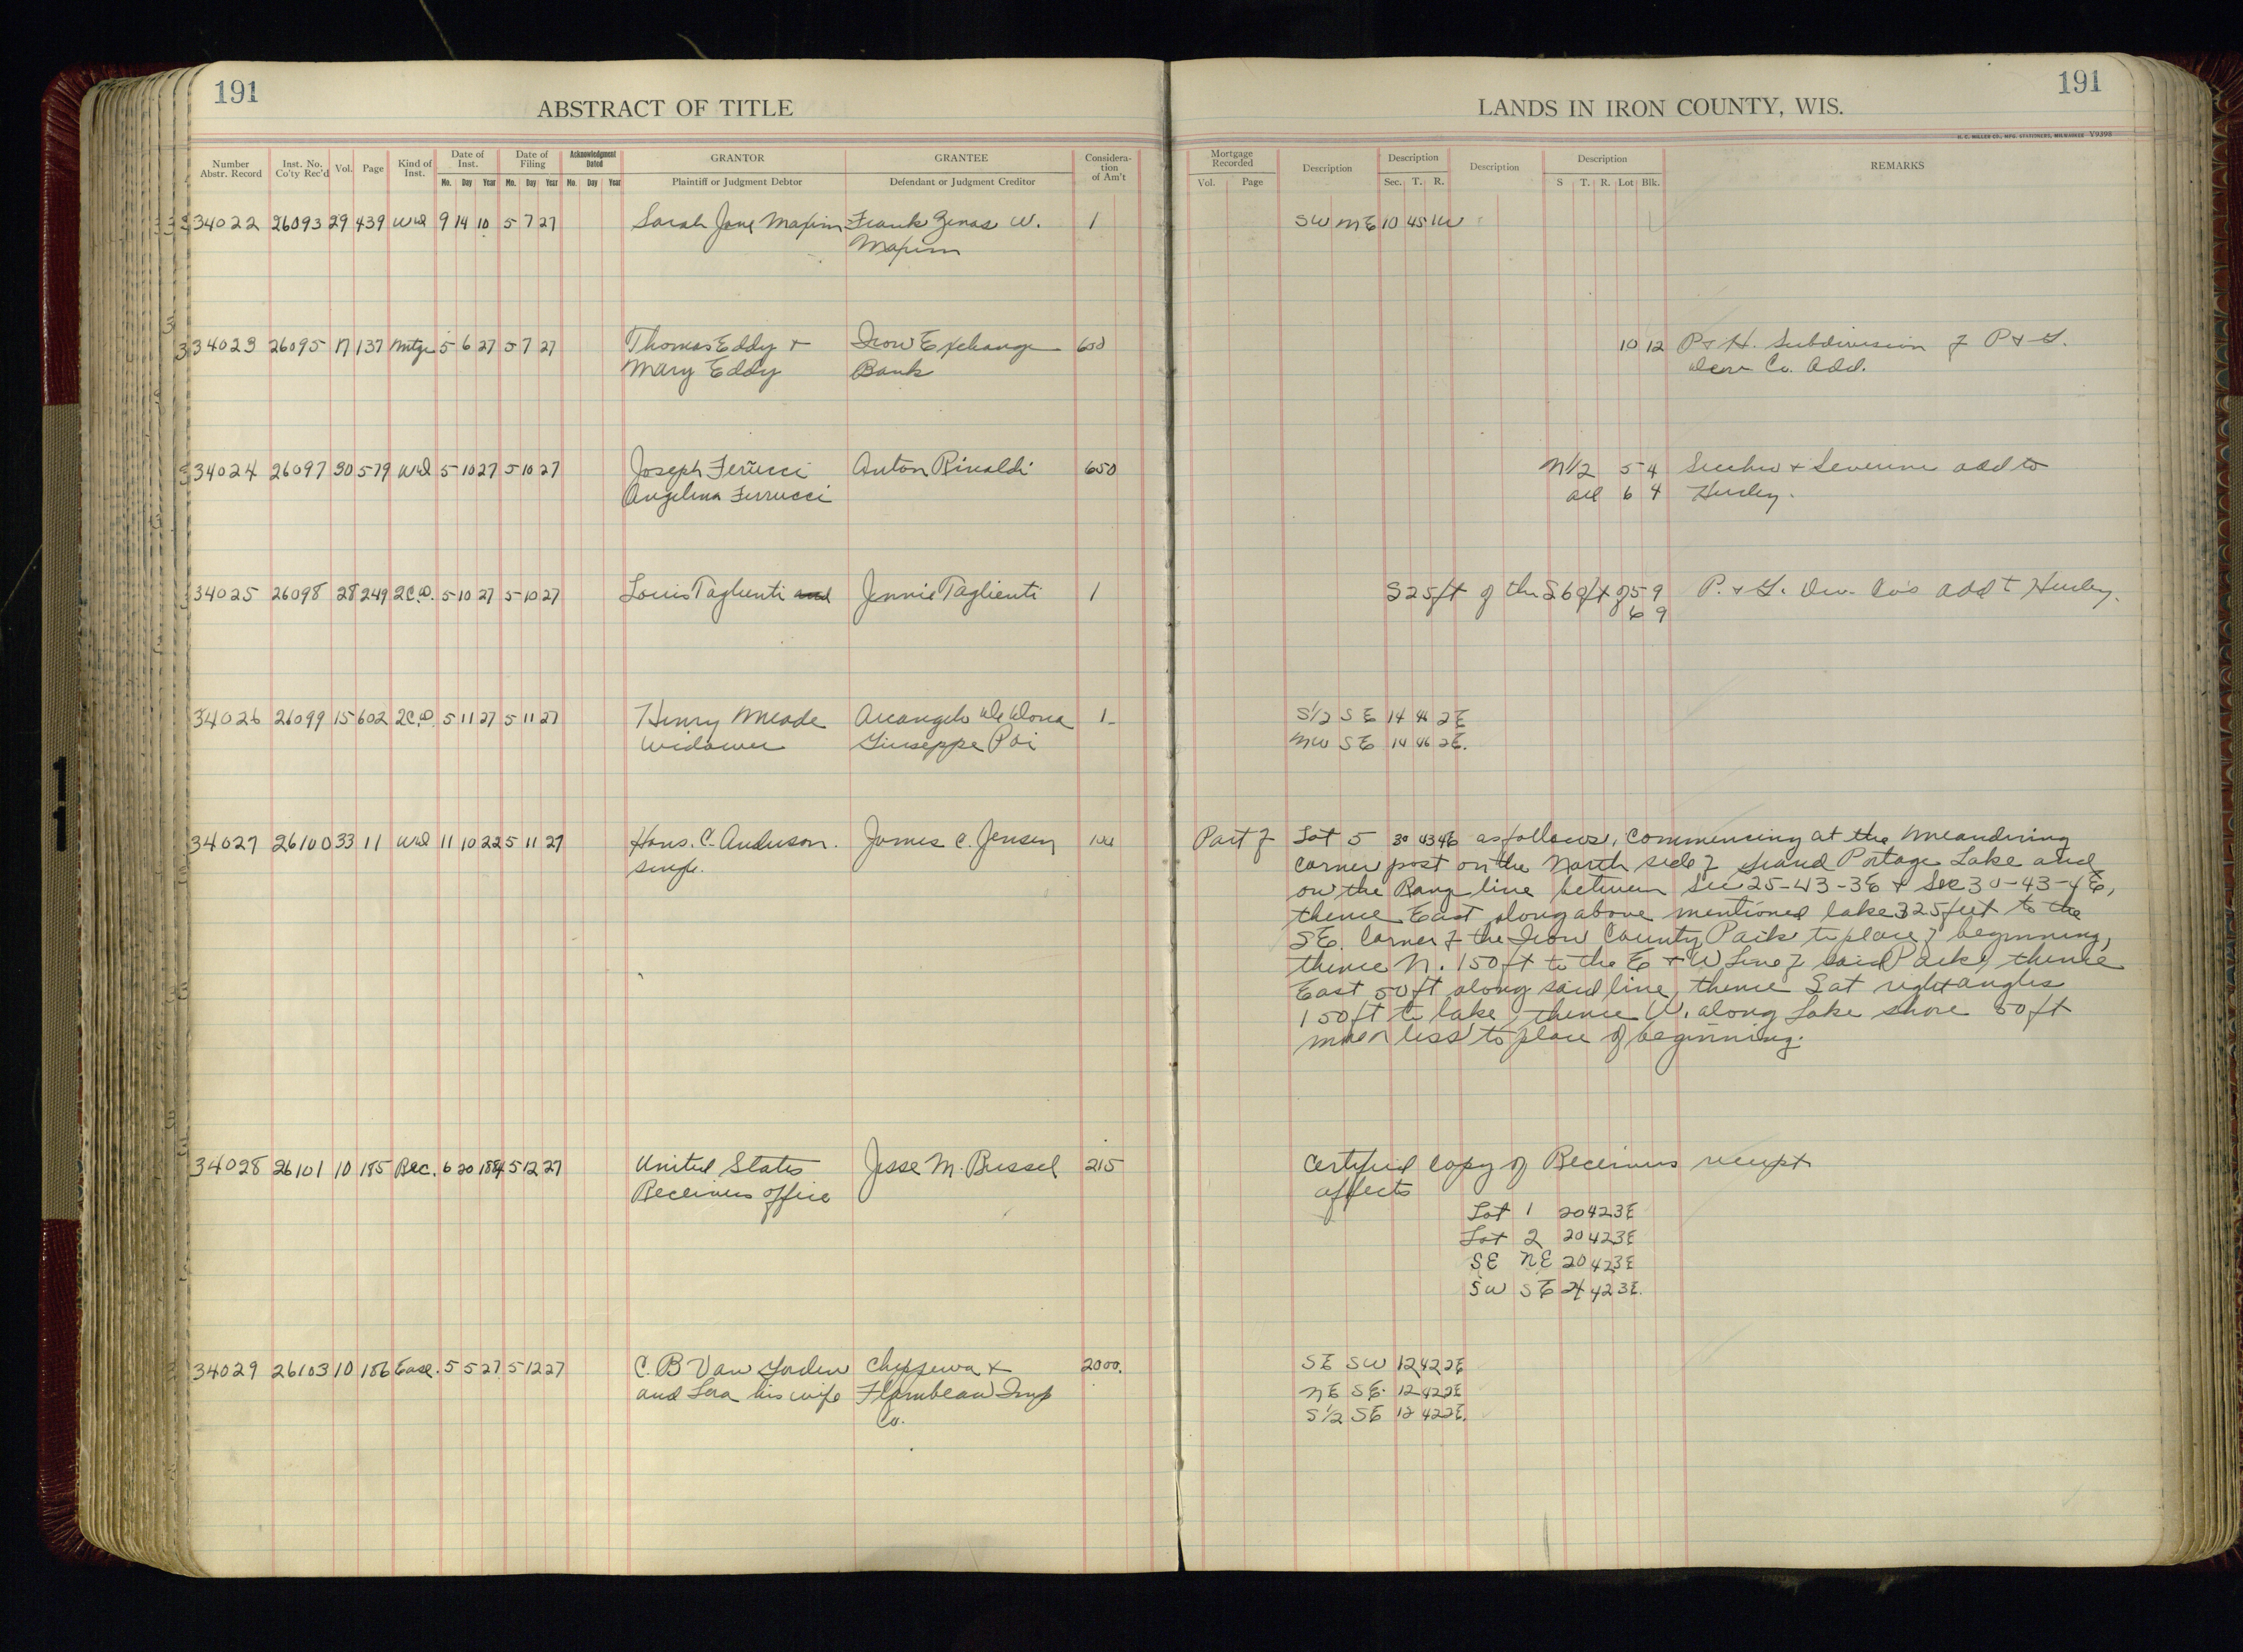 191
ABSTRACT OF TITLE
Number Abstr. Record Inst. No. Co'ty Rec'd Vol. Page Kind of Inst. Date of Inst. Date of Filing Acknowledgment Dated GRANTOR GRANTEE Considera-tion of Am't
Mo. Day Year Mo. Day Year Mo. Day Year Plaintiff or Judgment Debtor Defendant or Judgment Creditor
34022 26093 29 439 Wd 9 14 10 5 7 27 Sarah Jane Maxim Frank Zenas W. 1
Maxim
34023 26095 17 137 Mtge 5 6 27 5 7 27 Thomas Eddy + Iron Exchange 600
Mary Eddy Bank
34024 26097 30 579 Wd 5 10 27 5 10 27 Joseph Ferucci Anton Rinaldi 650
Angelina Ferrucci
34025 26098 28 249 2C.D. 5 10 27 5 10 27 Louis Taglienti and Jennie Taglienti 1
34026 26099 15 602 2C.D. 5 11 27 5 11 27 Henry Meade Arcangelo 1
Widower Giuseppe Poi
34027 26100 33 11 Wd 11 10 22 5 11 27 Hans. C. Anderson. James C. Jensen 100
single.
34028 26101 10 185 Rec. 6 20 1884 5 12 27 United States Jesse M. Bussel 215
Receivers office
34029 26103 10 186 Ease. 5 5 27 5 12 27 C. B Van Gorden Chippewa + 2000.
and Lora his wife Flambeau Imp
Co.
LANDS IN IRON COUNTY, WIS.
191
H. C. MILLER CO., MFG. STATIONERS, MILWAUKEE V9398
Mortgage Recorded Description Description Description Description REMARKS
Vol. Page Sec. T. R. S T. R. Lot Blk.
SW NE 10 45 1W
10 12 P + H. Subdivision of P + G.
Dev Co. Add.
N1/2 5 4 add to
all 6 4 Hurley.
S25ft of the S60ft of 5 9 P. + G. Dev. Co's add to Hurley.
6 9
S1/2 SE 14 46 2E
NW SE 14 46 2E.
Part of Lot 5 30 43 4E as follows, Commencing at the Meandering
corner post on the North side of Grand Portage Lake and
on the Range line between Sec 25-43-3E + Sec 30-43-4E,
thence East along above mentioned lake 325 feet to the
SE. Corner of the Iron County Park to place of beginning,
thence N. 150 ft to the E + W Line of said Park, thence
East 50 ft along said line, thence S at right angles
150 ft to lake, thence W. along Lake shore 50 ft
more or less to place of beginning.
Certified Copy of Receivers receipt
affects
Lot 1 20 42 3E
Lot 2 20 42 3E
SE NE 20 42 3E
SW SE 24 42 3E.
SE SW 12 42 2E
NE SE. 12 42 2E
S1/2 SE 12 42 2E.